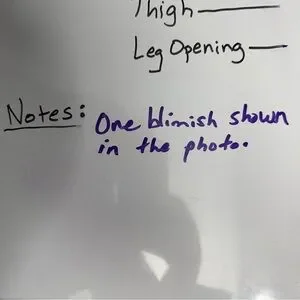 Thigh
Leg Opening
Notes: One blimish shown
in the photo.